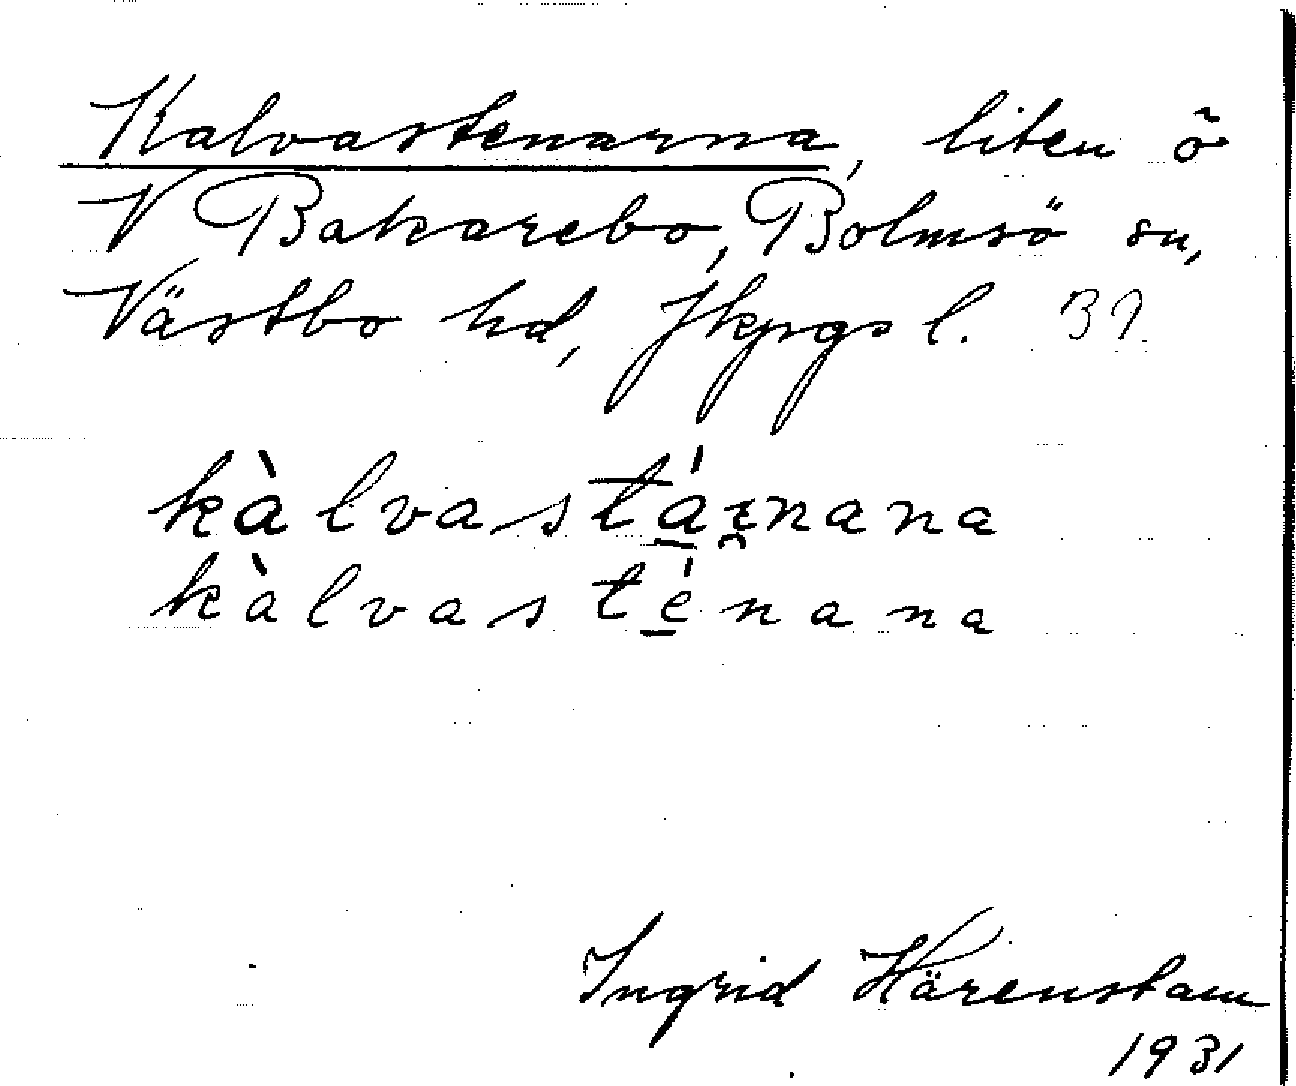 Kalvastenarna, liten ö
V Bakarebo, Bolmsö sn,
Västbo hd, Jkpgs l. 32.
kàlvastáɪnana
kàlvasténana
Ingrid Härenstam
1931